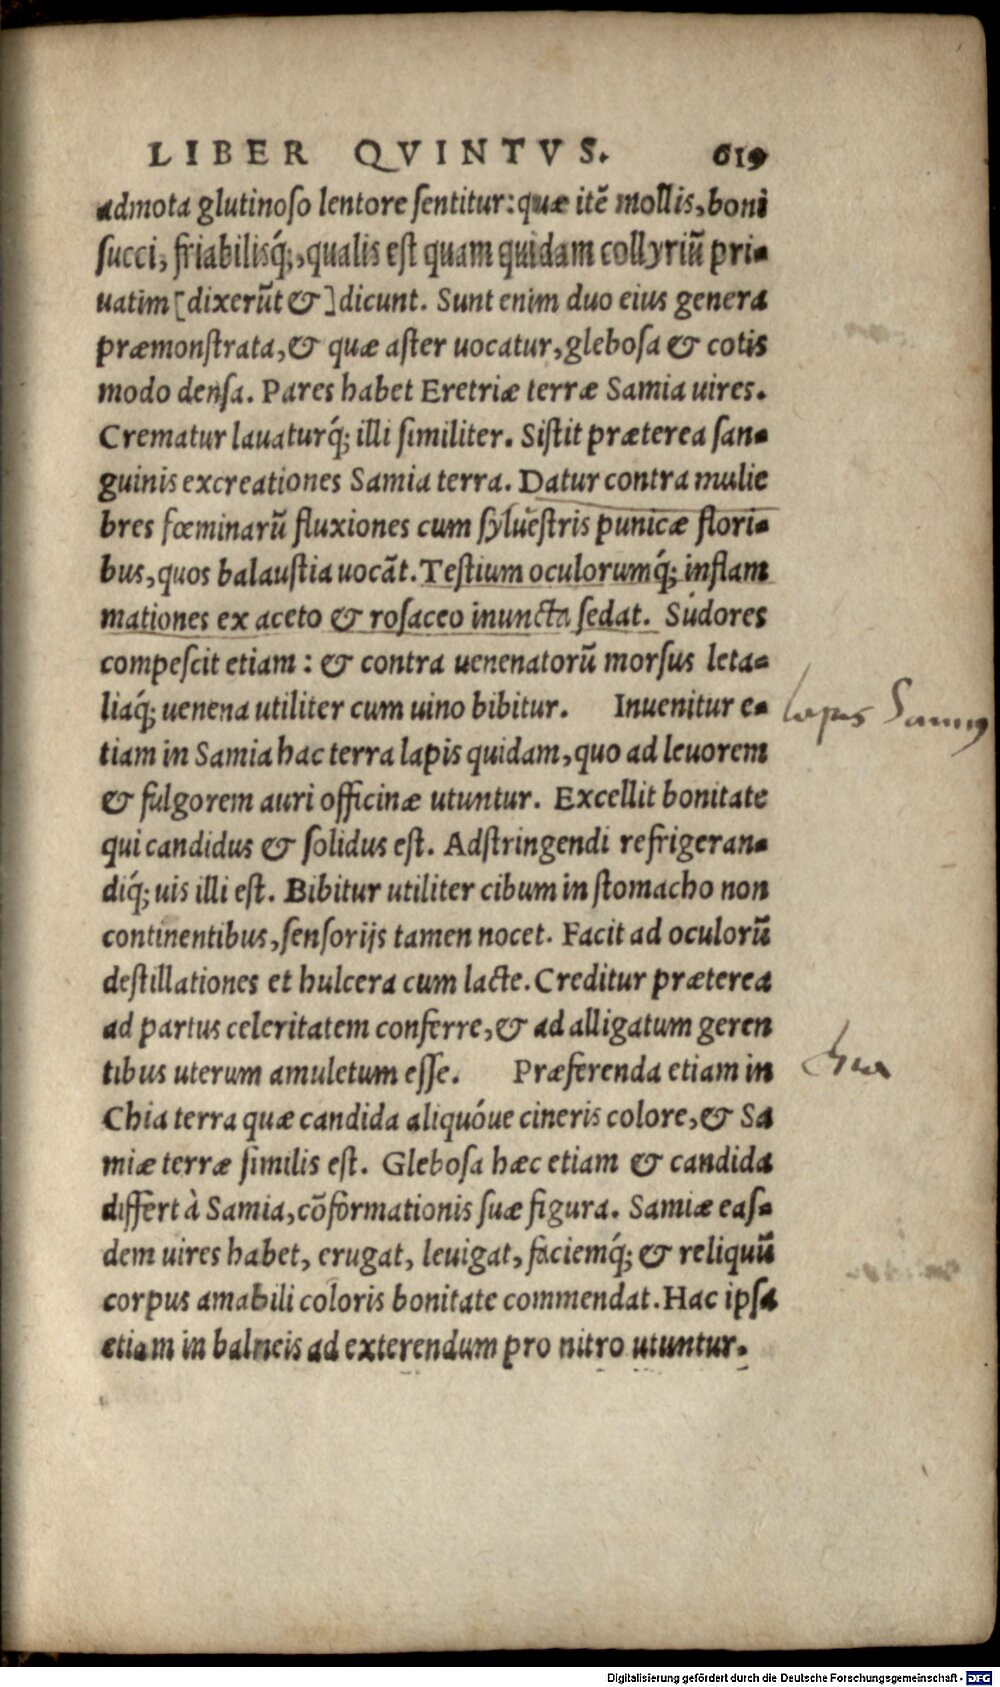 LIBER QVINTVS. 619
admota glutinoso lentore sentitur: quæ itē mollis, boni
succi, friabilisq́;, qualis est quam quidam collyriū pri-
uatim [dixerūt &] dicunt. Sunt enim duo eius genera
præmonstrata, & quæ aster uocatur, glebosa & cotis
modo densa. Pares habet Eretriæ terræ Samia uires.
Crematur lauaturq́; illi similiter. Sistit præterea san-
guinis excreationes Samia terra. Datur contra mulie
bres fœminarū fluxiones cum syluestris punicæ flori-
bus, quos balaustia uocāt. Testium oculorumq́; inflam
mationes ex aceto & rosaceo inuncta sedat. Sudores
compescit etiam: & contra uenenatorū morsus leta-
liaq́; uenena utiliter cum uino bibitur. Inuenitur e-
lapis Samius
tiam in Samia hac terra lapis quidam, quo ad leuorem
& fulgorem auri officinæ utuntur. Excellit bonitate
qui candidus & solidus est. Adstringendi refrigeran-
diq́; uis illi est. Bibitur utiliter cibum in stomacho non
continentibus, sensorijs tamen nocet. Facit ad oculorū
destillationes et hulcera cum lacte. Creditur præterea
ad partus celeritatem conferre, & ad alligatum geren
tibus uterum amuletum esse. Præferenda etiam in
Chia terra quæ candida aliquóue cineris colore, & Sa
miæ terræ similis est. Glebosa hæc etiam & candida
differt à Samia, cōformationis suæ figura. Samiæ eas-
dem uires habet, erugat, leuigat, faciemq́; & reliquū
corpus amabili coloris bonitate commendat. Hac ipsa
etiam in balneis ad exterendum pro nitro utuntur.
Digitalisierung gefördert durch die Deutsche Forschungsgemeinschaft - DFG